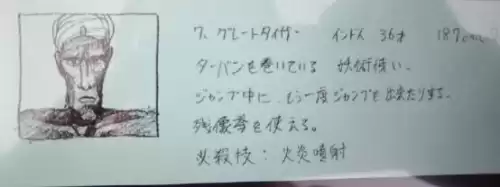 7. グレートタイガー インド人 36才 187cm
ターバンを巻いている 妖術使い.
ジャンプ中に、もう一度ジャンプを出来たりする.
残像拳を使える。
必殺技:火炎噴射